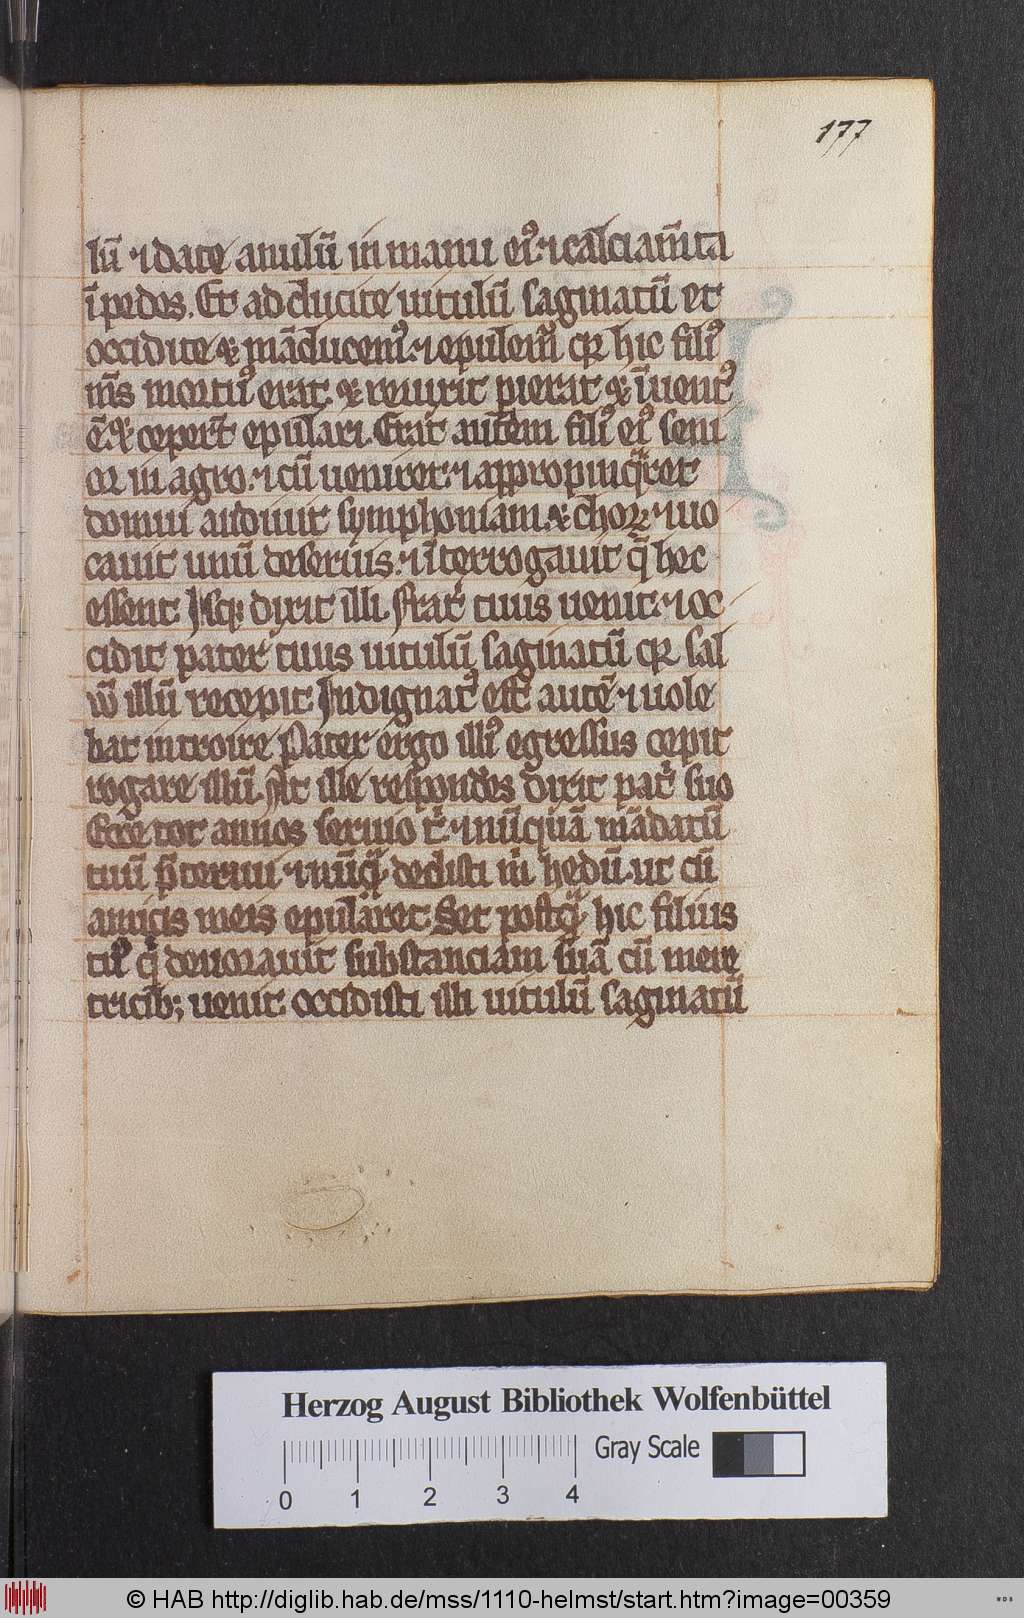 177
lū ⁊ date anulū in manu ei⁹ ⁊ calciam̄ta
ī pedes. Et adducite uitulū saginatū et
occidite ⁊ māducem⁹ ⁊ epulem̄ qꝛ hic fili⁹
m̄s mortu⁹ erat ⁊ reuixit pierat ⁊ īuent⁹
ē. ⁊ ceper̄t epulari. Erat autem fili⁹ ei⁹ seni
or in agro. ⁊ cū ueniret ⁊ appropinq̄ret
domui audiuit symphoniam ⁊ choꝝ ⁊ uo
cauit unū de seruis. ⁊ īterrogauit q̄ hec
essent Isqꝫ dixit illi. Frat̄ tuus uenit. ⁊ oc
cidit pater tuus uitulū saginatū qꝛ sal
uū illū recepit Indignat⁹ est autē ⁊ nole
bat introire Pater ergo illi⁹ egressus cepit
rogare illū. At ille respondēs dixit pat̄ suo
Ecce tot annos seruio t̄ ⁊ nūquā mādatū
tuū p̄teriui ⁊ nūq̄ dedisti m̄ hedū ut cū
amicis meis epularet Set postq̄ hic filius
tu⁹ q̄ deuorauit substanciam suā cū mere
tricib; uenit occidisti illi uitulū saginatū
Herzog August Bibliothek Wolfenbüttel
Gray Scale
0 1 2 3 4
© HAB http://diglib.hab.de/mss/1110-helmst/start.htm?image=00359